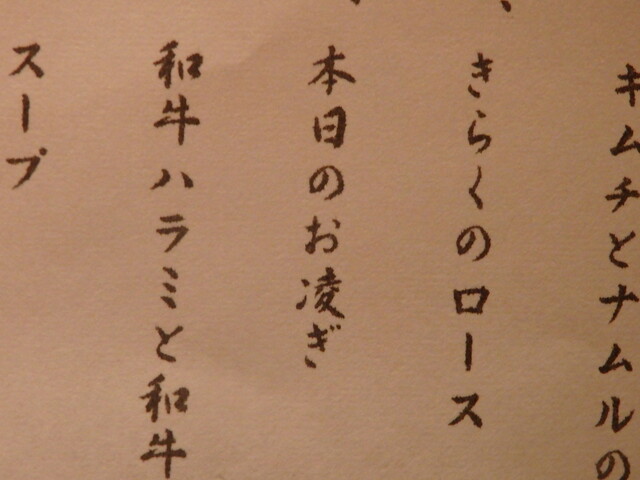 キムチとナムルの
きらくのロース
本日のお凌ぎ
和牛ハラミと和牛
スープ